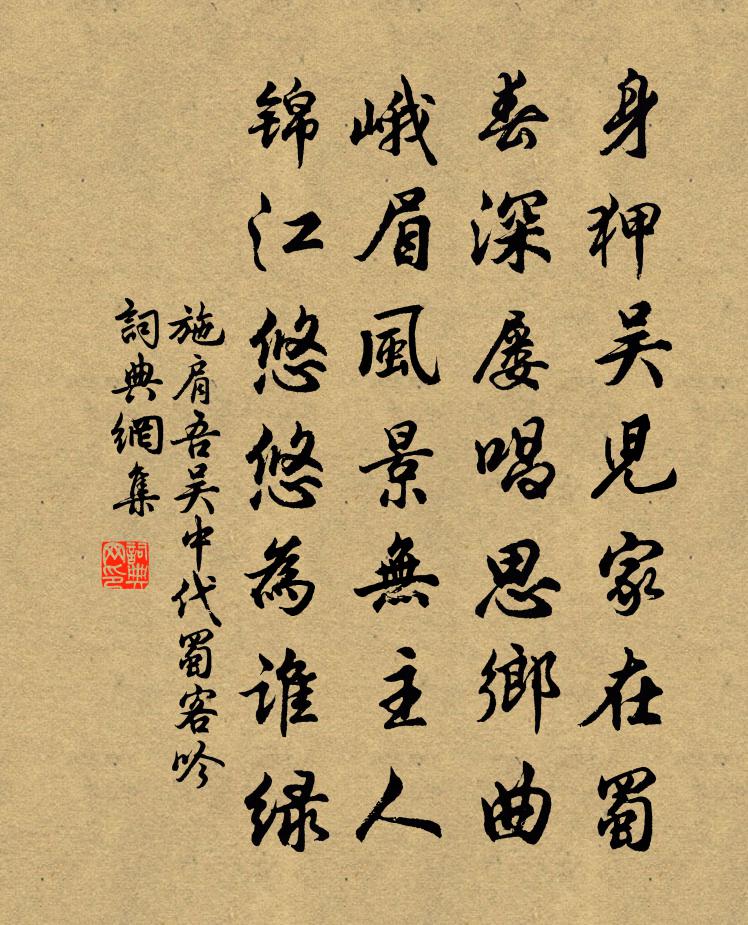 身狎吴児家在蜀
春深屡唱思鄉曲
峨眉風景無主人
锦江悠悠為誰绿
施肩吾吴中代蜀客吟
詞典網集
詞典网印